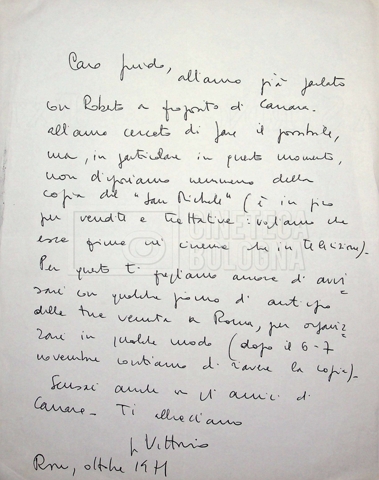 Caro Guido,
abbiamo già parlato
con Roberto a proposito di Carrara.
abbiamo cercato di fare il possibile,
ma, in particolare in questo momento,
non disponiamo nemmeno della
copia del "San Michele" (è in giro
per vendite e trattative: vogliamo che
esca prima nei cinema che in televisione).
Per questo ti preghiamo ancora di avvi
sarci con qualche giorno di anticipo
della tua venuta a Roma, per organiz
zarci in qualche modo (dopo il 6-7
novembre contiamo di riavere la copia).
Scusaci anche con gli amici di
Carrara. Ti abbracciamo
Vittorio
Roma, ottobre 1971
CINETECA
BOLOGNA